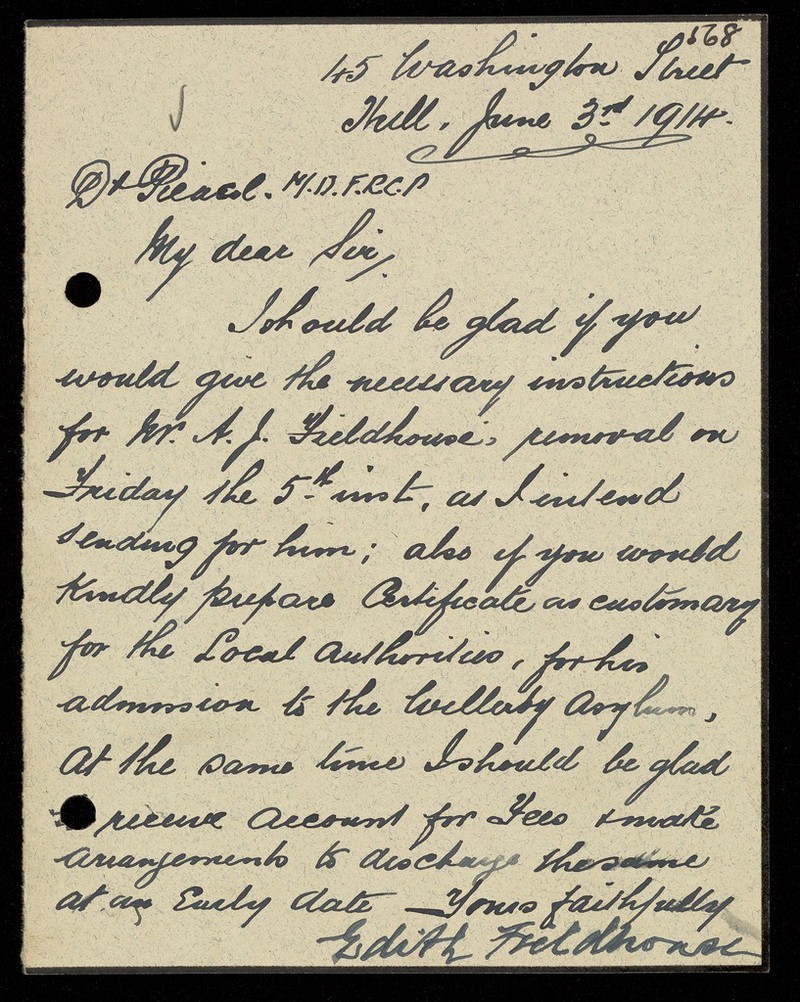 568
45 Washington Street
Hull, June 3rd 1914.
Dr Pierce. M.D. F.R.C.P
My dear Sir,
I should be glad if you
would give the necessary instructions
for Mr. A. J. Fieldhouse's removal on
Friday the 5th inst, as I intend
sending for him; also if you would
Kindly prepare Certificate as customary
for the Local Authorities, for his
admission to the Willerby Asylum,
At the same time I should be glad
to receive account for Fees & make
arrangements to discharge the same
at an Early date Yours faithfully
Edith Fieldhouse